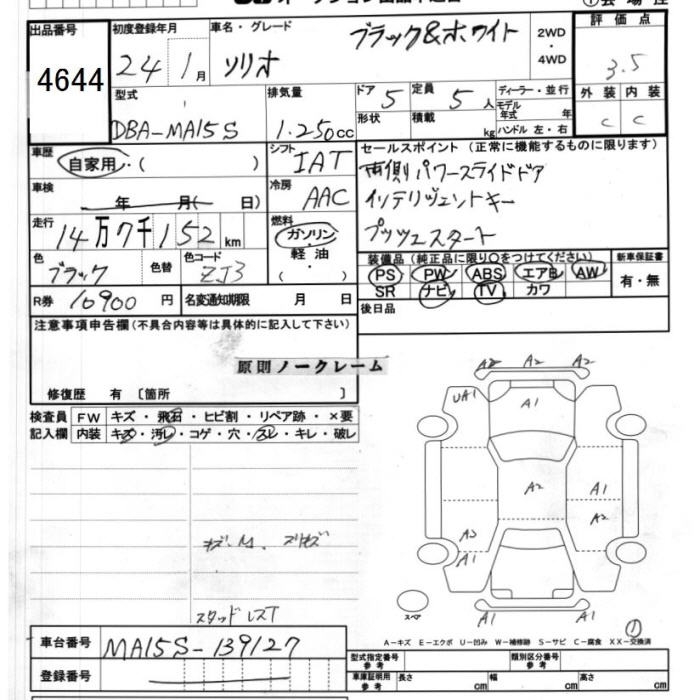 出品番号
4644
初度登録年月
24 1月
車名・グレード
ソリオ
ブラック&ホワイト
2WD
・
4WD
評価点
3.5
外装 内装
C C
型式
DBA-MA15S
排気量
1.250cc
ドア 5
定員 5人
形状
積載 kg
ディーラー・並行
モデル年式 年
ハンドル 左・右
車歴
自家用・( )
シフト
IAT
セールスポイント (正常に機能するものに限ります)
両側パワースライドドア
インテリジェントキー
プッシュスタート
車検
年 月( 日)
冷房
AAC
走行
14万7千152km
燃料
ガソリン・
軽油・
( )
色
ブラック
色替
色コード
ZJ3
装備品 (純正品に限り○をつけてください)
PS PW ABS エアB AW
SR ナビ TV カワ
新車保証書
有・無
R券 10900円
名変通知期限 月 日
後日品
注意事項申告欄(不具合内容等は具体的に記入して下さい)
原則ノークレーム
修復歴 有 〔箇所 〕
検査員記入欄
FW キズ・飛石・ヒビ割・リペア跡・×要
内装 キズ・汚レ・コゲ・穴・スレ・キレ・破レ
A2 A2 A2
UA1 A1
A2 A1
A2
A1
A1
スペア
A-キズ E-エクボ U-凹み W-補修跡 S-サビ C-腐食 XX-交換済
車台番号
MA15S-139127
登録番号
型式指定番号
参考
類別区分番号
参考
車庫証明用
参考
長さ cm
幅 cm
高さ cm